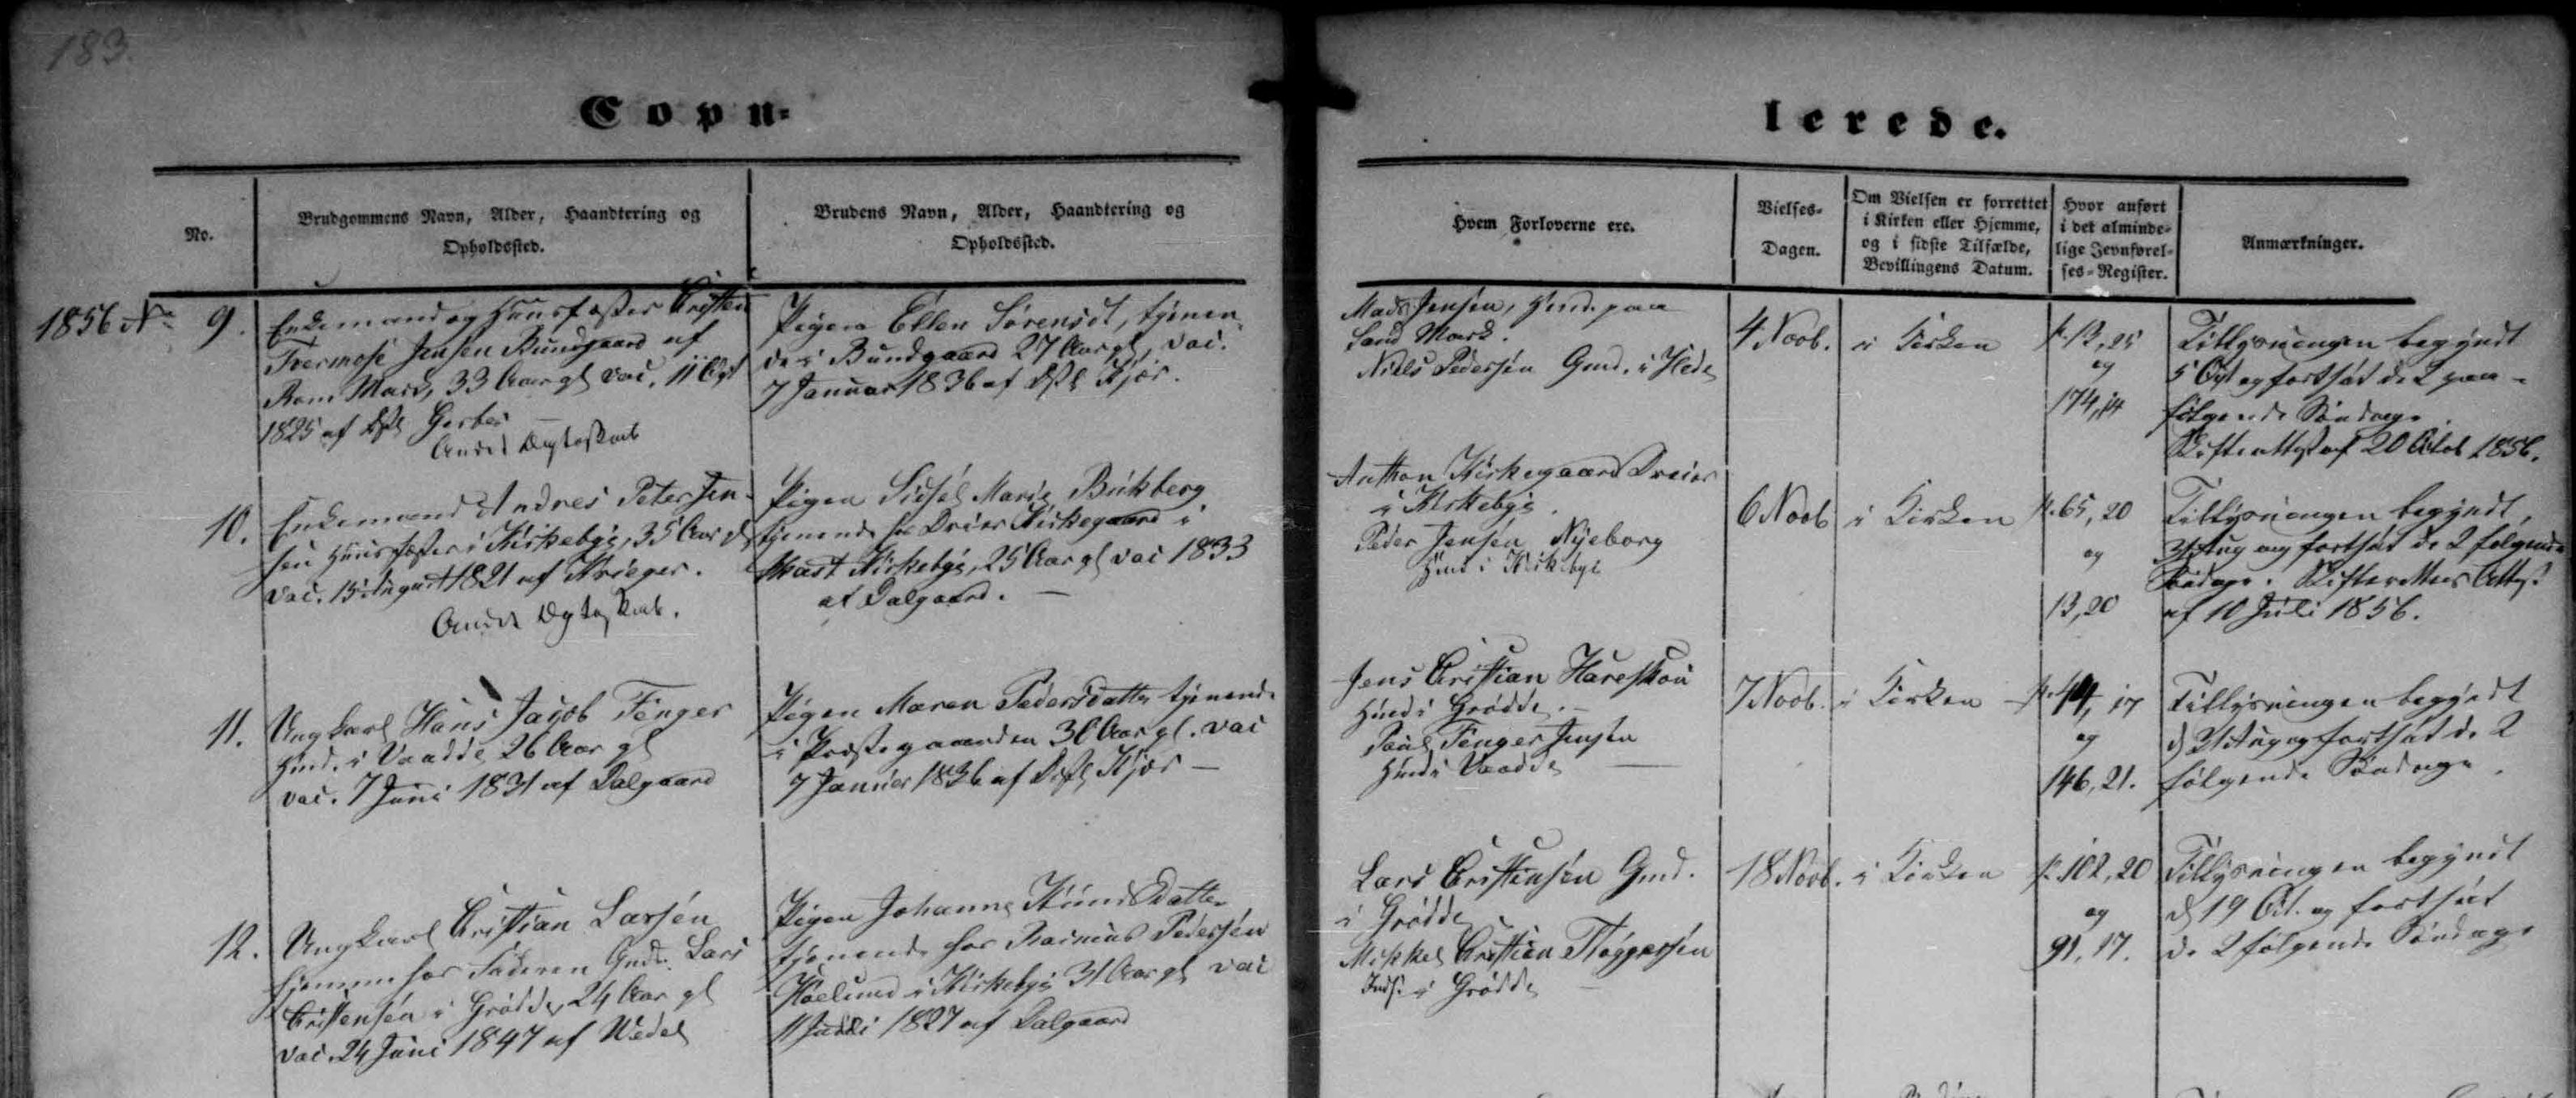 183.
Copu-
lerede.
No.
Brudgommens Navn, Alder, Haandtering og
Opholdssted.
Brudens Navn, Alder, Haandtering og
Opholdssted.
Hvem Forloverne ere.
Vielses-
Dagen.
Om Vielsen er forrettet
i Kirken eller Hjemme,
og i sidste Tilfælde,
Bevillingens Datum.
Hvor anført
i det alminde-
lige Jevnførel-
ses-Register.
Anmærkninger.
1856 No 9.
Enkemand og Huusfæster Cristen
Jensen Bundgaard af
Mark, 33 Aar gl vac. 11
1825 af
Andet Ægteskab
Pigen Ellen Sørensdt, tjenen-
de i Bundgaard 27 Aar gl, vac.
7 Januar 1836 af Kjær.
Mads Jensen, Huusm. paa
Sand Mark.
Niels Pedersen Gmd. i Hede
4 Novb.
i Kirken
p. 13, 25
og
174, 14
Tillysningen begyndt
5 Oct og fortsat de 2 paa-
følgende Søndage.
Skifteattest af 20 Octob 1856.
10.
Enkemand Andres Peter Jen-
sen Huusfæster i Kirkebye, 35 Aar gl
vac. 15 August 1821 af Krieger.
Andet Ægteskab.
Pigen Sidsel Marie Bukberg
tjenende hos Dreier Kirkegaard i
Kirkebye, 25 Aar gl vac 1833
af Dalgaard.
Anthon Kirkegaard Dreier
i Kirkebye.
Peder Jensen Nyeborg
Hmd i Kirkebye
6 Novb
i Kirken
p. 65, 20
og
13, 20
Tillysningen begyndt
Aug og fortsat de 2 følgende
Søndage. Skifterettens Attest
af 10 Juli 1856.
11.
Ungkarl Hans Jacob Fenger
Hmd. i Vaadde 26 Aar gl
vac. 7 Juni 1831 af Dalgaard
Pigen Maren Pedersdatter tjenende
i Præstegaarden 30 Aar gl. vac
7 Januar 1836 af Kjær
Jens Cristian Hareskou
Hmd i Grødde.
Poul Fenger Jensen
Hmd i Vaadde
7 Novb.
i Kirken
p. 14, 17
og
146, 21.
Tillysningen begyndt
d Aug og fortsat de 2
følgende Søndage.
12.
Ungkarl Cristian Larsen
hjemme hos Faderen Gmd. Lars
Cristensen i Grødde, 24 Aar gl
vac. 24 Juni 1847 af Wedel
Pigen Johanne Knudsdatter
tjenende hos Rasmus Pedersen
i Kirkebye 31 Aar gl vac
11 Juli 1827 af Dalgaard
Lars Cristensen Gmd.
i Grødde
Mikkel Cristian Thøggersen
Inds. i Grødde
18 Novb.
i Kirken
p. 102, 20
og
91, 17.
Tillysningen begyndt
d 19 Oct. og fortsat
de 2 følgende Søndage